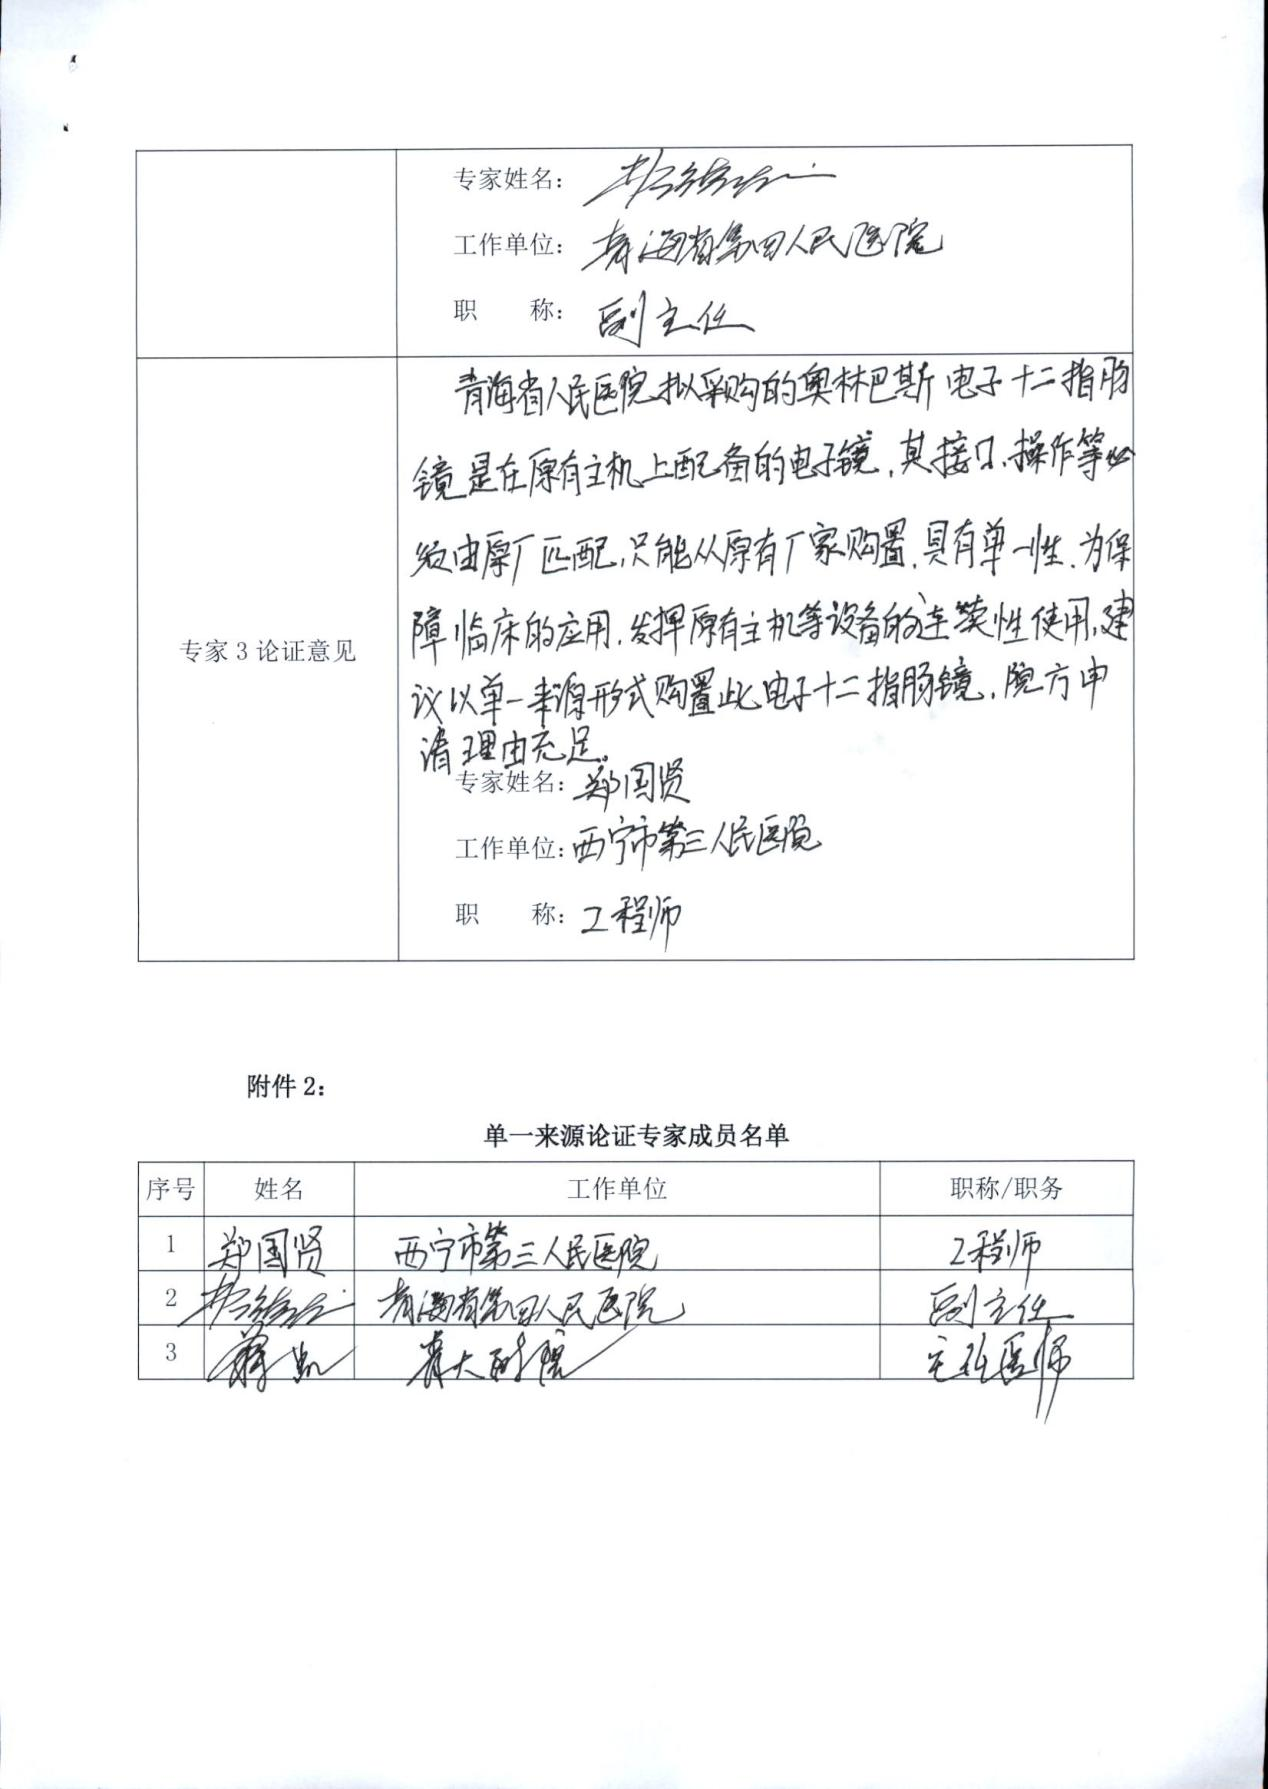 专家姓名：
工作单位：青海省第四人民医院
职　　称：副主任
青海省人民医院拟采购的奥林巴斯电子十二指肠
镜是在原有主机上配备的电子镜，其接口、操作等必
须由原厂匹配，只能从原有厂家购置，具有单一性，为保
障临床的应用，发挥原有主机等设备的连续性使用，建
议以单一来源形式购置此电子十二指肠镜，院方申
请理由充足。
专家3论证意见
专家姓名：郑国贤
工作单位：西宁市第三人民医院
职　　称：工程师
附件2：
单一来源论证专家成员名单
序号 姓名 工作单位 职称/职务
1 郑国贤 西宁市第三人民医院 工程师
2 青海省第四人民医院 副主任
3 青大附院 主任医师